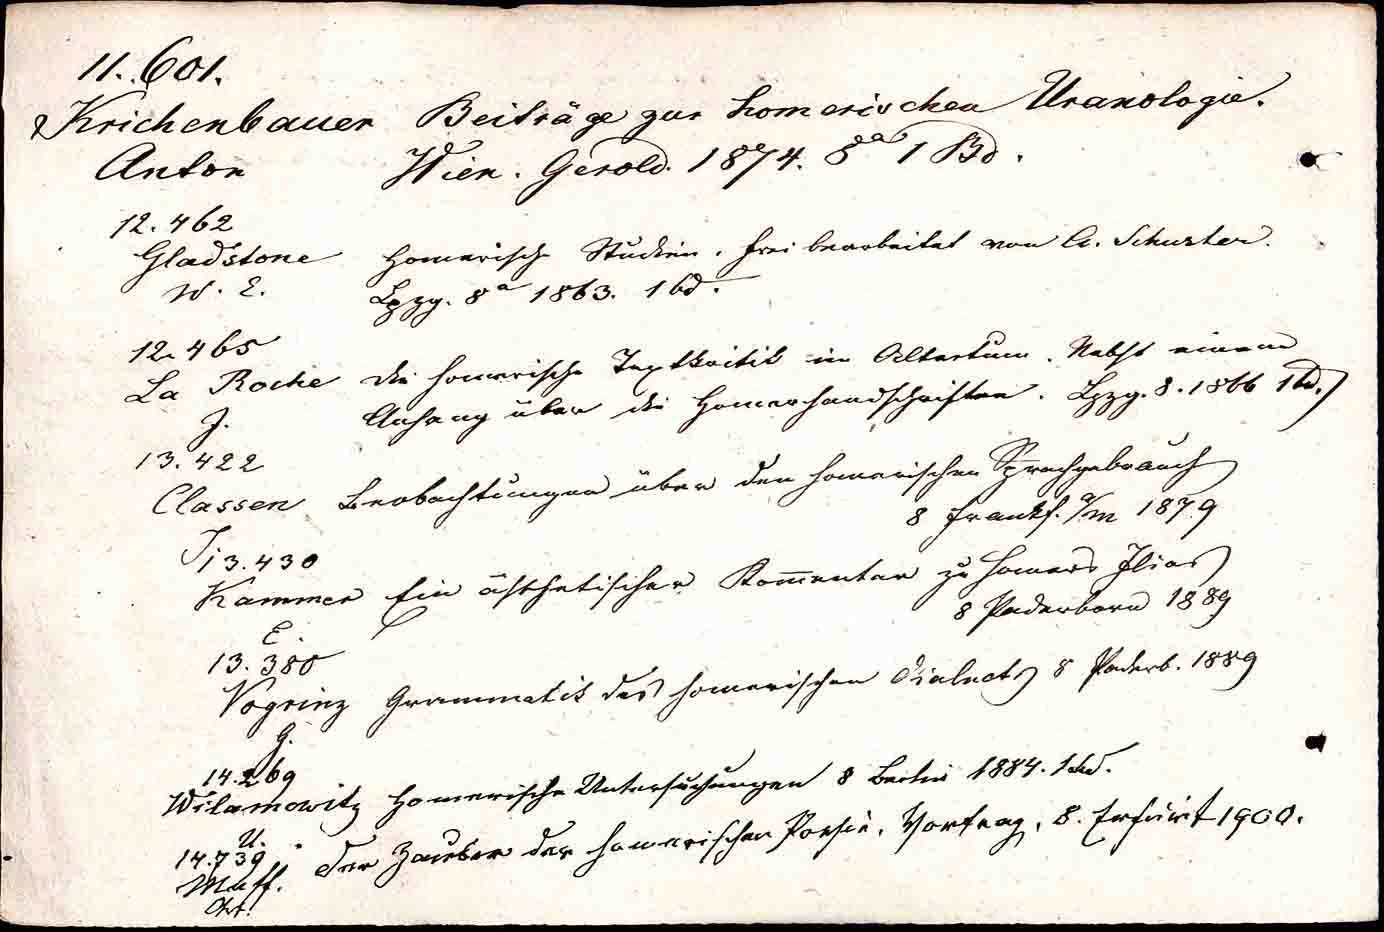 11.601.
Krichenbauer Beiträge zur homerischen Uranologie.
Anton Wien. Gerold. 1874. 8° 1 Bd.
12.462
Gladstone Homerische Studien, frei bearbeitet von A. Schuster.
W. E. Lpzg. 8° 1863. 1 bd.
12.465
La Roche die homerische Textkritik im Altertum. Nebst einem
J. Anhang über die Homerhandschriften. Lpzg. 8. 1866 1 bd.
13.422
Classen Beobachtungen über den homerischen Sprachgebrauch
J 8 Frankf. a/m 1879
13.430
Kammer Ein ästhetischer Kom̅entar zu Homers Ilias
E. 8 Paderborn 1889
13.380
Vogrinz Grammatik des homerischen Dialects 8 Paderb. 1889
G.
14.269
Wilamowitz Homerische Untersuchungen 8 Berlin 1884. 1 bd.
U.
14.739
Muff. Der Zauber der homerischen Poesie. Vortrag. 8. Erfurt 1900.
Chr.